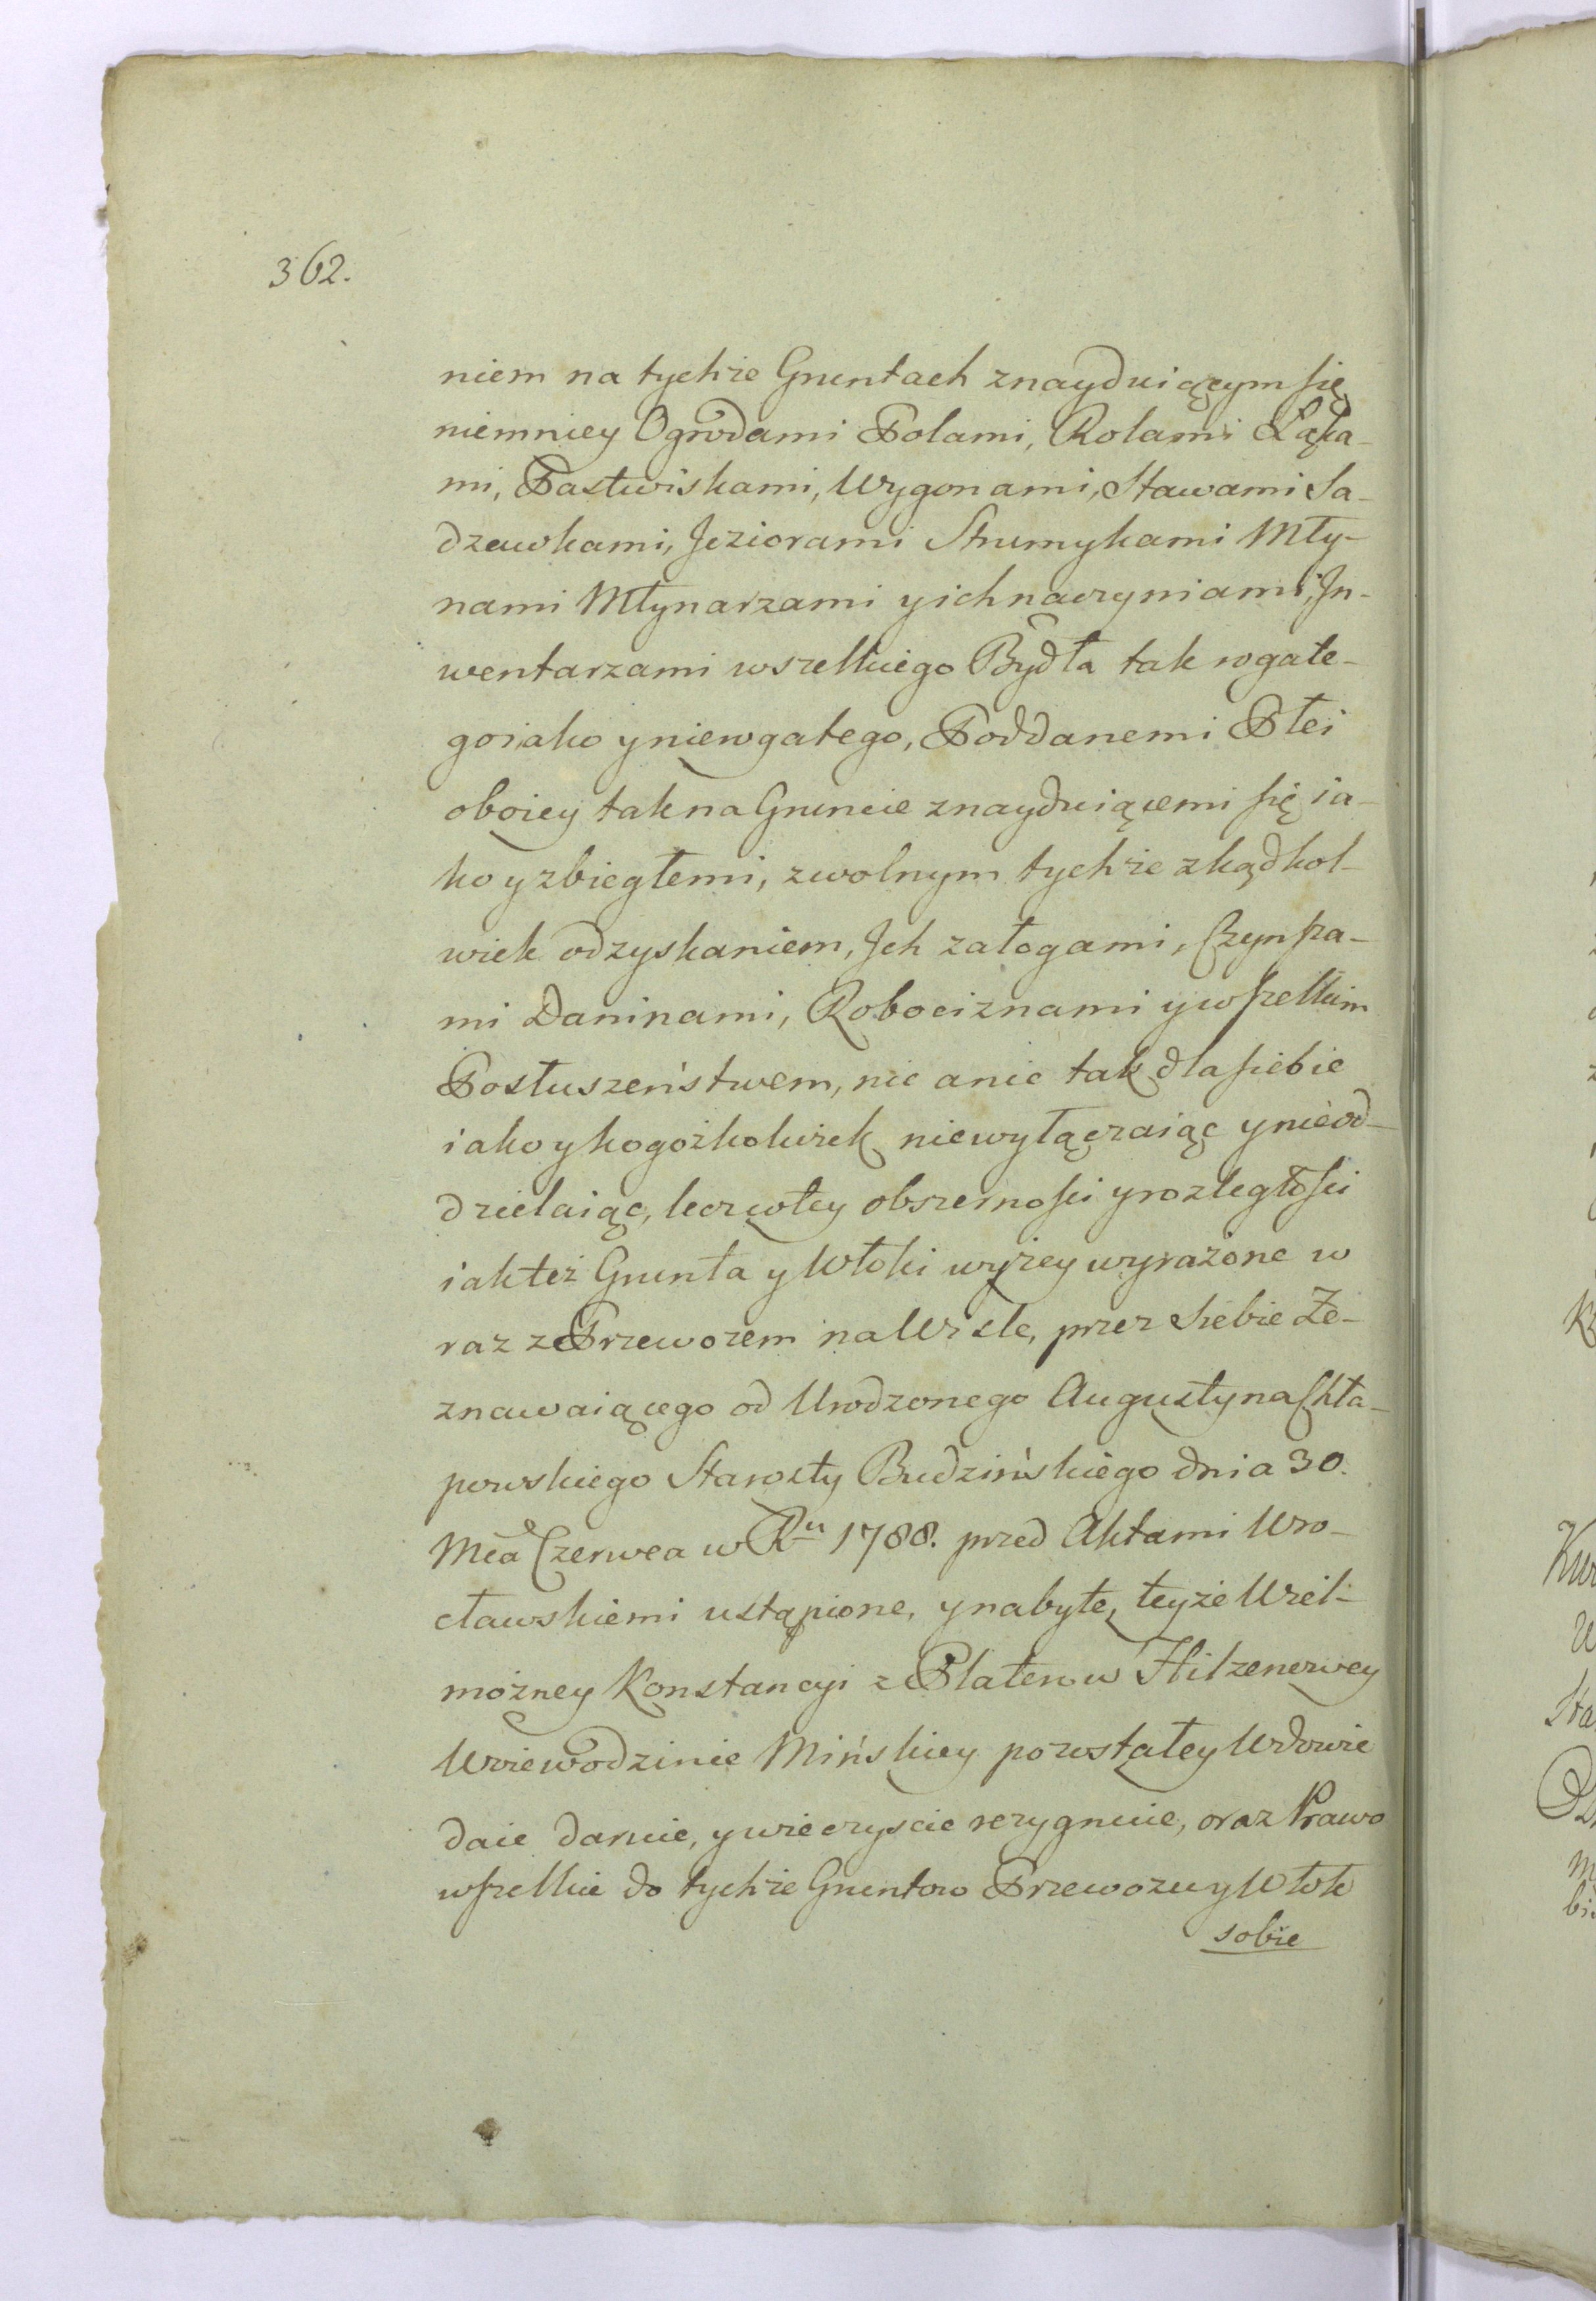 362.
niem na tychże Gruntach znayduiącym się
niemniey Ogrodami Polami, Rolami Łąka-
mi, Pastwiskami, Wygonami, Stawami Sa-
dzawkami, Jeziorami Strumykami Mły-
nami Młynarzami y ich naczyniami, In-
wentarzami wszelkiego Bydła tak rogate-
go iako y nierogatego, Poddanemi Płci
oboiey tak na Gruncie znayduiącemi się ia-
ko y zbiegłemi, z wolnym tychże zkądkol-
wiek odzyskaniem, Ich załogami, Czynsza-
mi Daninami, Robociznami y wszelkim
Posłuszeństwem, nic a nic tak dla siebie
iako y kogożkolwiek niewyłączaiąc y nieod-
dzielaiąc, lecz w tey obszerności y rozległości
iak też Grunta y Włóki wyżey wyrażone w
raz z Przewozem na Wiśle, przez Siebie Ze-
znawaiącego od Urodzonego Augustyna Chła-
powskiego Starosty Budzińskiego dnia 30.
Mca Czerwca w Ru 1788. przed Aktami Wro-
cławskiemi ustąpione, y nabyte, teyże Wiel-
możney Konstancyi z Platerow Hilzenowey
Woiewodzinie Mińskiey pozostałey Wdowie
daie daruie, y wieczyscie rezygnuie, oraz Prawo
wszelkie do tychże Gruntow Przewozu y Włok
sobie